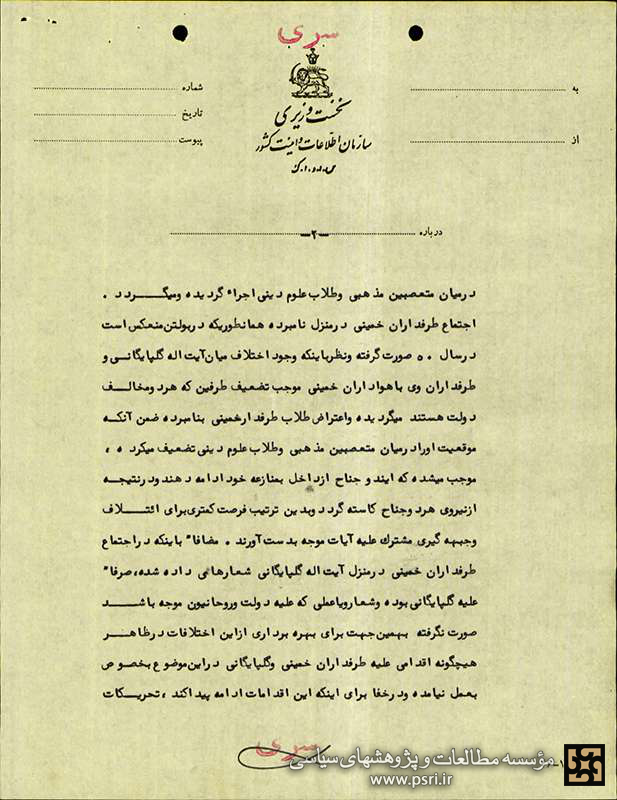 سری
شماره
تاریخ
پیوست
به
از
نخست وزیری
سازمان اطلاعات و امنیت کشور
س.ا.و.ا.ک
درباره
-۲-
درمیان متعصبین مذهبی وطلاب علوم دینی اجراء گردیده ومیگردد .
اجتماع طرفداران خمینی درمنزل نامبرده همانطوریکه دربولتن منعکس است
درسال ۵۰ صورت گرفته ونظرباینکه وجود اختلاف میان آیت اله گلپایگانی و
طرفداران وی باهواداران خمینی موجب تضعیف طرفین که هردومخالف
دولت هستند میگردیده واعتراض طلاب طرفدارخمینی بنامبرده ضمن آنکه
موقعیت اورادرمیان متعصبین مذهبی وطلاب علوم دینی تضعیف میکرده ،
موجب میشده که ایندوجناح ازداخل بمنازعه خود ادامه دهند ودرنتیجه
ازنیروی هردوجناح کاسته گردد وبدین ترتیب فرصت کمتری برای ائتلاف
وجبهه گیری مشترک علیه آیات موجه بدست آورند . مضافاً باینکه دراجتماع
طرفداران خمینی درمنزل آیت اله گلپایگانی شعارهائی داده شده، صرفاً
علیه گلپایگانی بوده وشعارویاعملی که علیه دولت وروحانیون موجه باشد
صورت نگرفته بهمین جهت برای بهره برداری ازاین اختلافات درظاهر
هیچگونه اقدامی علیه طرفداران خمینی وگلپایگانی دراین موضوع بخصوص
بعمل نیامده ودرخفا برای اینکه این اقدامات ادامه پیداکند ، تحریکات
سری
مؤسسه مطالعات و پژوهشهای سیاسی
www.psri.ir